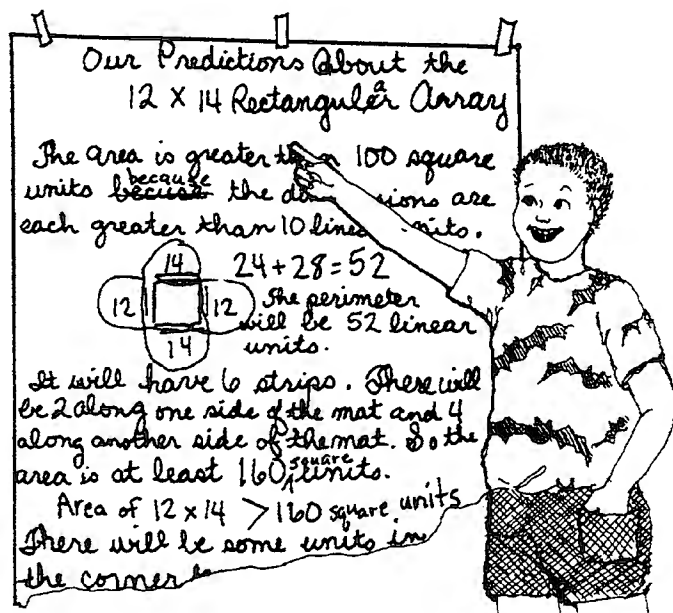 Our Predictions About the
12 x 14 Rectangular Array
The area is greater 100 square
units because the are
each greater than 10
14 24 + 28 = 52
12 12 The perimeter
will be 52 linear
14 units.
It will have 6 strips. There will
be 2 along one side of the mat and 4
along another side of the mat. So the
area is at least 160 square units.
Area of 12 x 14 > 160 square units
There will be some units in
the corner